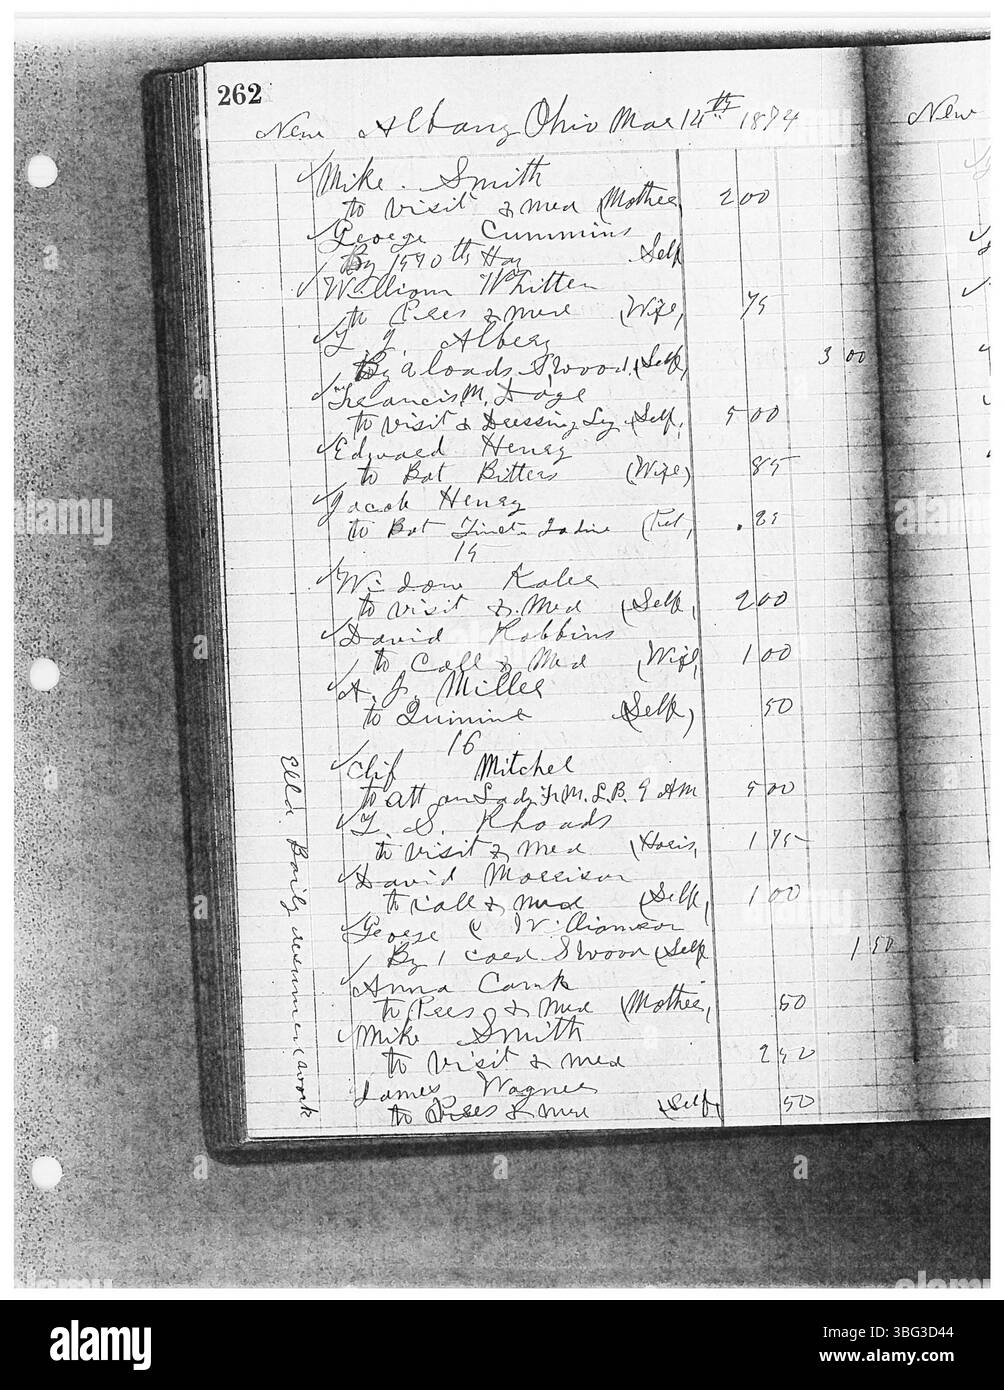 262
New Albany Ohio Mar 14th 1894
New
Mike Smith
to visit & med (Mother, 2 00
George Cummins
By 1570 lb Hay Self
William Whitten
to Pres & med (Wife, 75
Albery
By 2 loads S wood, (Self, 3 00
Francis M. Doge
to visit & Dressing Leg (Self, 5 00
Edward Henry
to Bot Bitters (Wife) 85
Jacob Henry
to Bot Tinct Iodine .25
15
Widow Kaler
to visit & Med (Self, 2 00
David Robbins
to Call & Med (Wife, 1 00
A. J. Miller
to Quinine (Self, 50
16
Clif Mitchel
to att on Lady 9 AM 5 00
S. Rhoads
to visit & med 1 75
David Morrison
to call & med (Self, 1 00
George C Williamson
By 1 cord S wood (Self 1 50
Anna Cark
to Pres & med (Mother, 50
Mike Smith
to visit & med 2 50
James Wagner
to Pres & med (Self, 50
Ella Baily work
alamy
a
Image ID: 3BG3D44
www.alamy.com